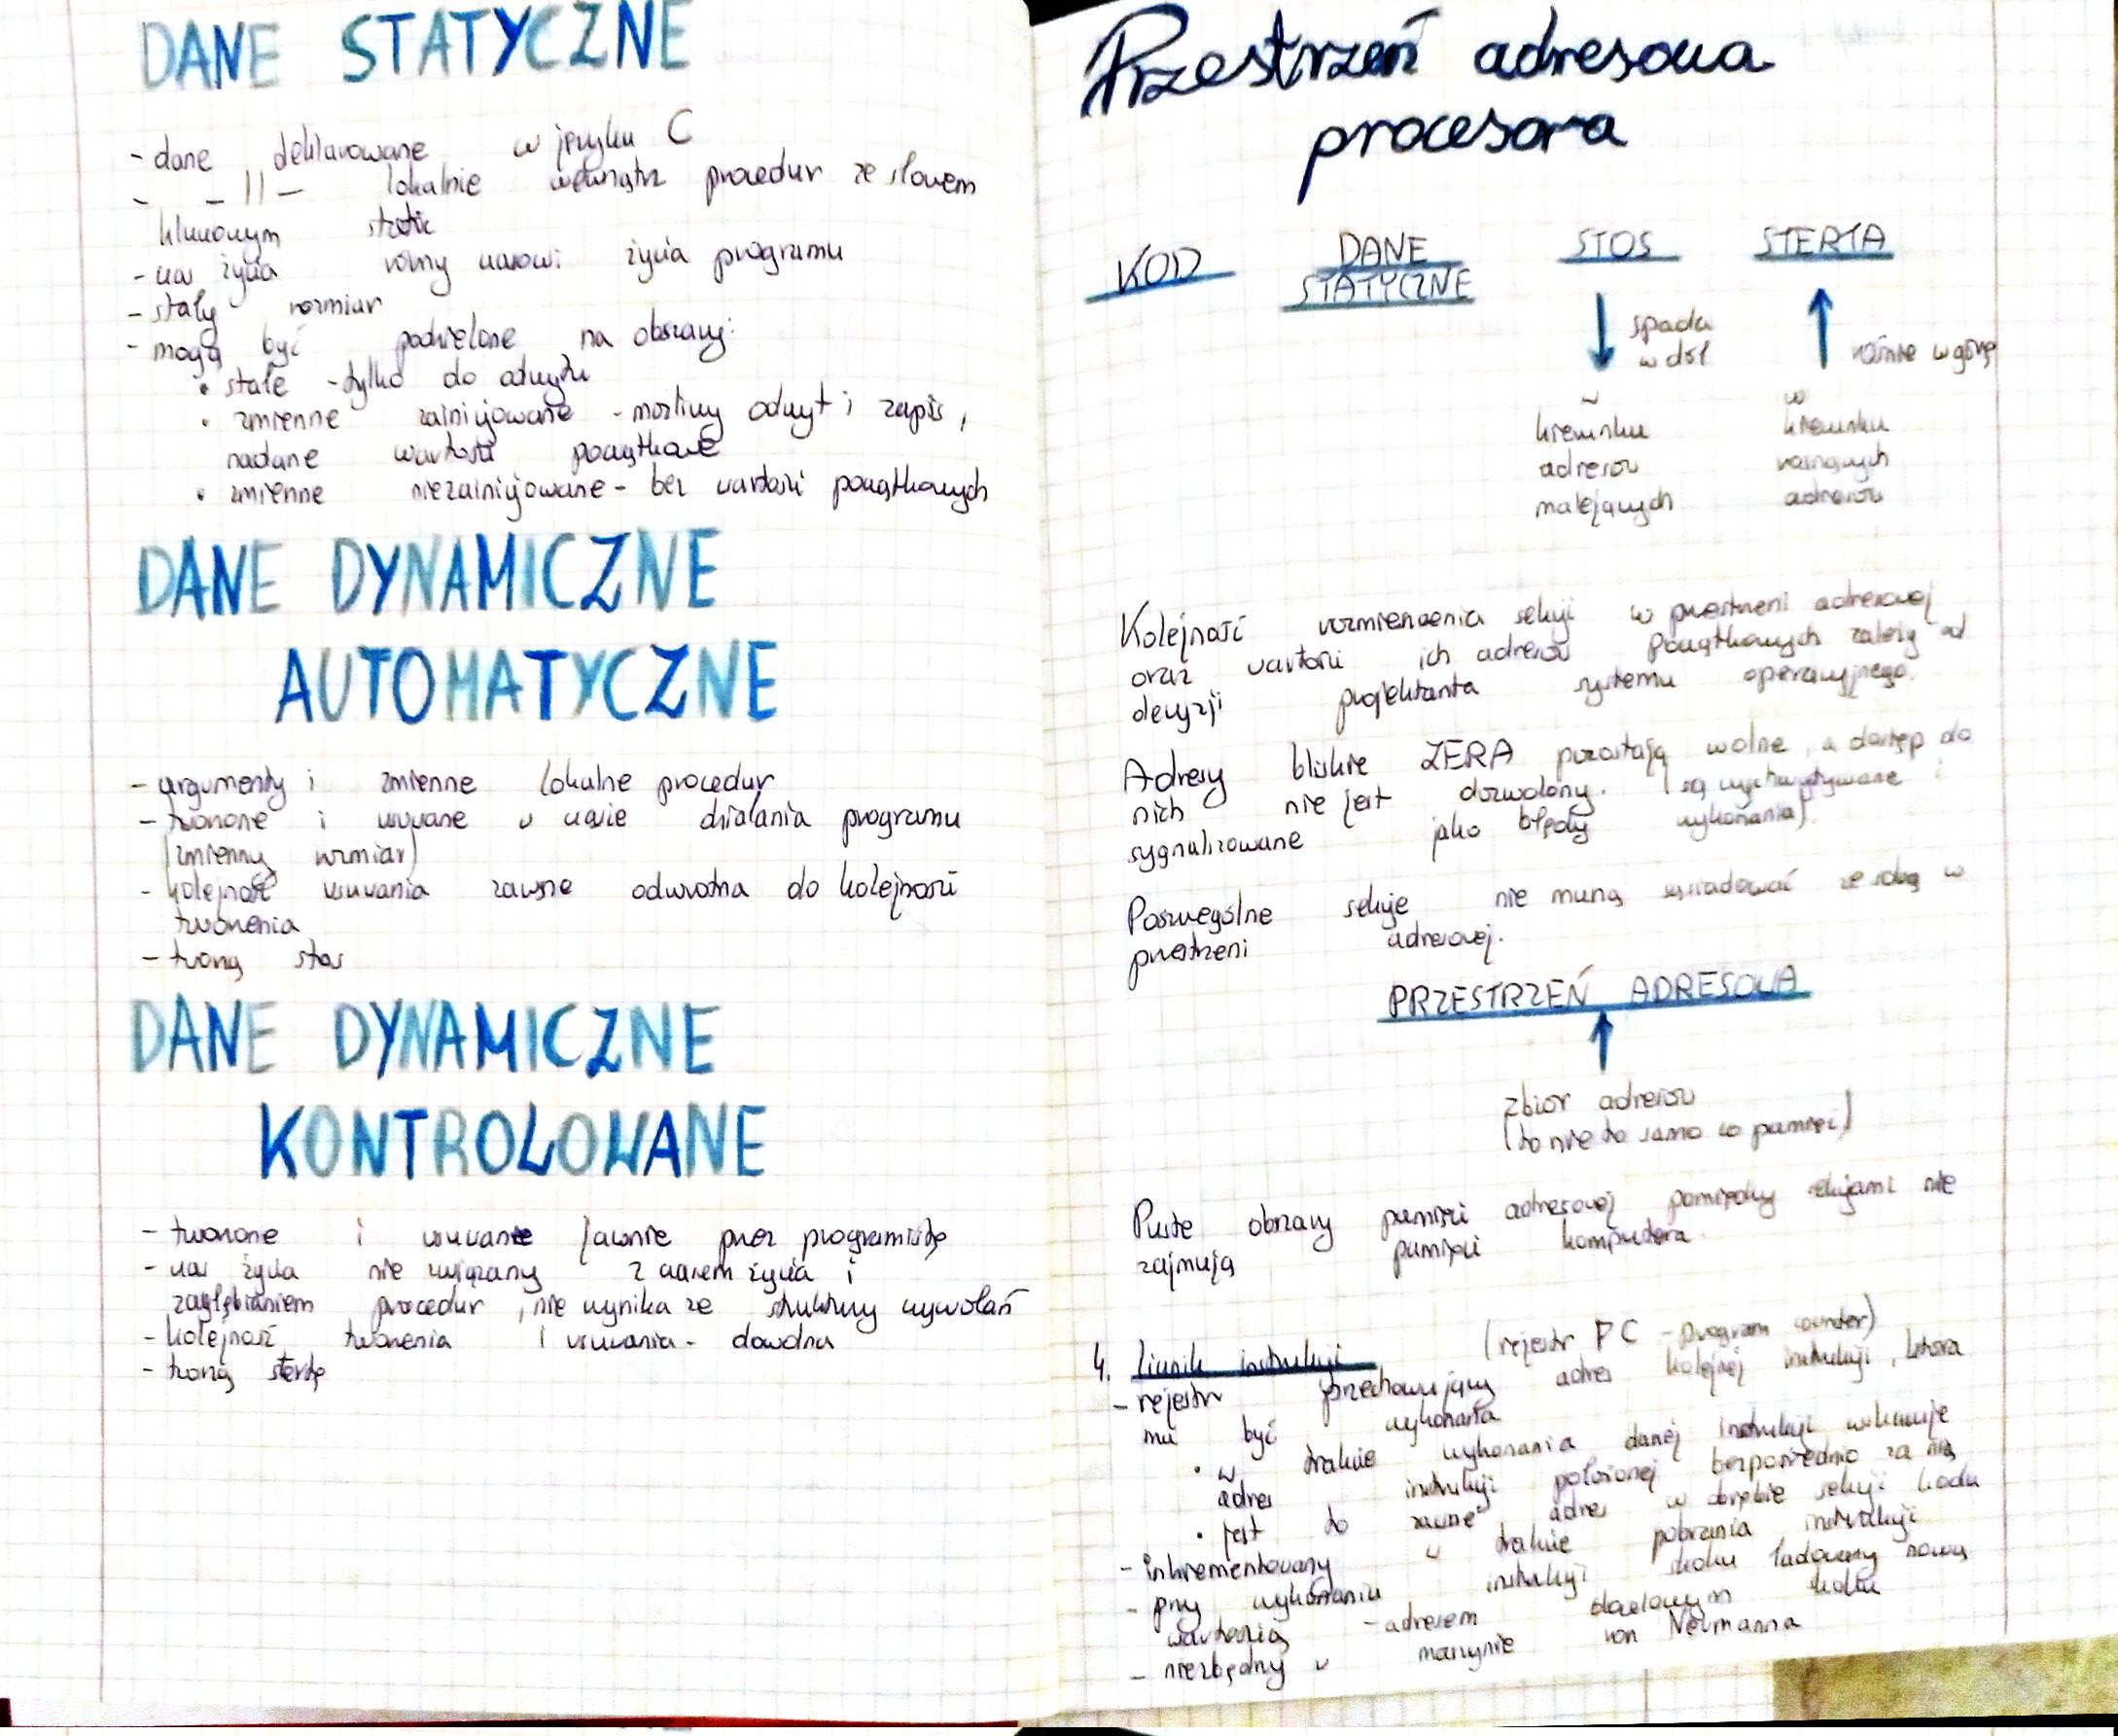 DANE STATYCZNE
- dane deklarowane w języku C
- -||- lokalnie wewnątrz procedur ze słowem
kluczowym static
- czas życia równy czasowi życia programu
- stały rozmiar
- mogą być podzielone na obszary:
• stałe - tylko do odczytu
• zmienne zainicjowane - możliwy odczyt i zapis,
nadane wartości początkowe
• zmienne niezainicjowane - bez wartości początkowych
DANE DYNAMICZNE
AUTOMATYCZNE
- argumenty i zmienne lokalne procedur
- tworzone i usuwane w czasie działania programu
(zmienny rozmiar)
- kolejność usuwania zawsze odwrotna do kolejności
tworzenia
- tworzą stos
DANE DYNAMICZNE
KONTROLOWANE
- tworzone i usuwane jawnie przez programistę
- czas życia nie związany z czasem życia i
zagłębianiem procedur, nie wynika ze struktury wywołań
- kolejność tworzenia i usuwania - dowolna
- tworzą stertę
Przestrzeń adresowa
procesora
KOD DANE STATYCZNE STOS STERTA
spada
w dół
rośnie w górę
w
kierunku
adresów
malejących
w
kierunku
rosnących
adresów
Kolejność rozmieszczenia sekcji w przestrzeni adresowej
oraz wartości ich adresów początkowych zależy od
decyzji projektanta systemu operacyjnego.
Adresy bliskie ZERA pozostają wolne, a dostęp do
nich nie jest dozwolony. (są wychwytywane i
sygnalizowane jako błędy wykonania).
Poszczególne sekcje nie muszą sąsiadować ze sobą w
przestrzeni adresowej.
PRZESTRZEŃ ADRESOWA
zbiór adresów
(to nie to samo co pamięć)
Puste obszary pamięci adresowej pomiędzy sekcjami nie
zajmują pamięci komputera.
4. Licznik instrukcji (rejestr PC - program counter)
- rejestr przechowujący adres kolejnej instrukcji, która
ma być wykonana
• w trakcie wykonania danej instrukcji wskazuje
adres instrukcji położonej bezpośrednio za nią
• jest to zawsze adres w obrębie sekcji kodu
- inkrementowany w trakcie pobrania instrukcji
- przy wykonaniu instrukcji skoku ładowany nową
wartością - adresem docelowym skoku
- niezbędny w maszynie von Neumanna